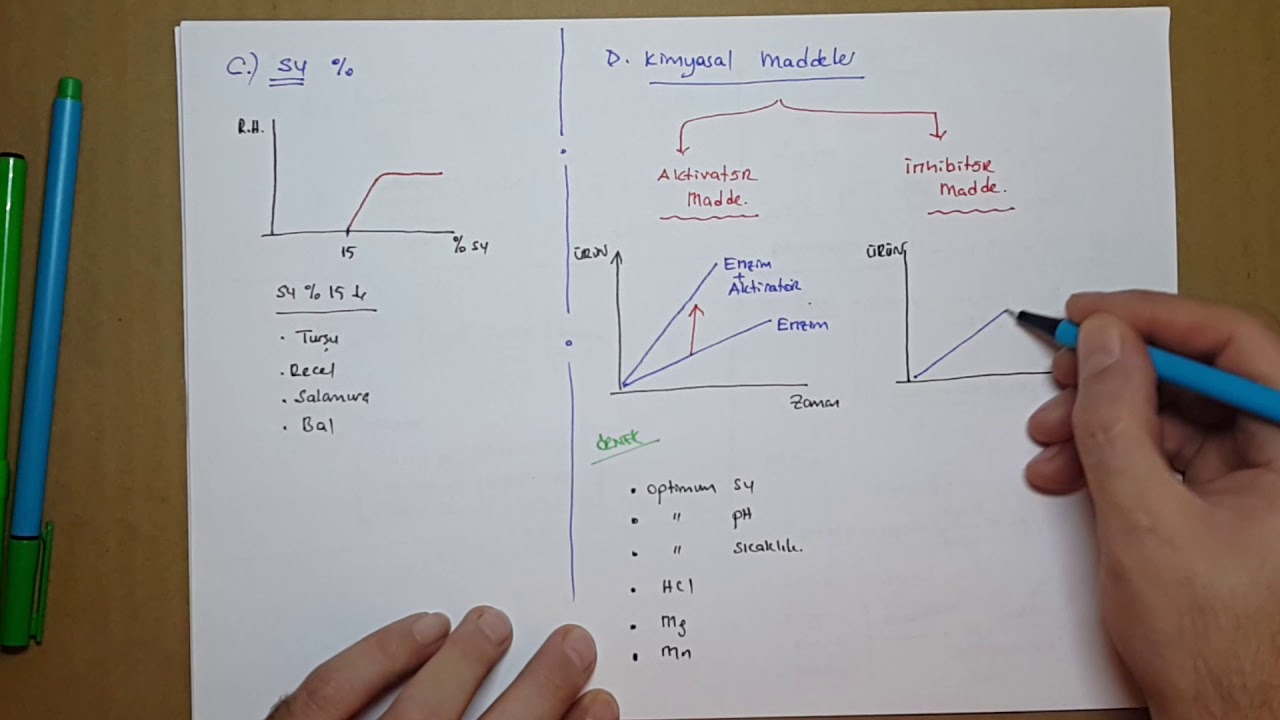 C.) Su %
R.H.
15
% Su
Su % 15 ↓
• Turşu
• Recel
• Salamura
• Bal
D. Kimyasal Maddeler
Aktivatör
Madde.
inhibitör
Madde.
ÜRÜN
Enzim
+
Aktivatör
Enzim
Zaman
ÜRÜN
ÖRNEK
• Optimum Su
• " pH
• " Sıcaklık.
• HCl
• Mg
• Mn